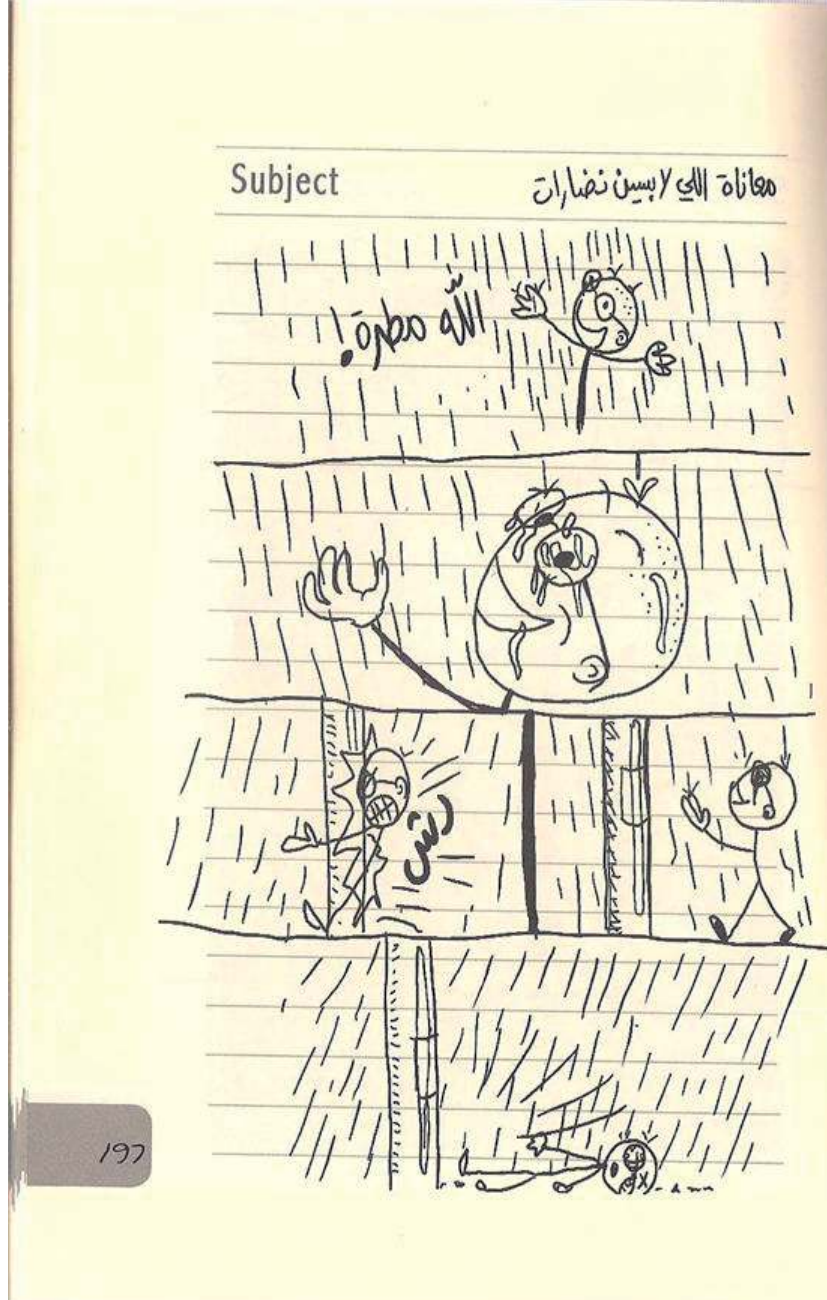 Subject
معاناة اللي لابسين نضارات
الله مطرة!
رش
197